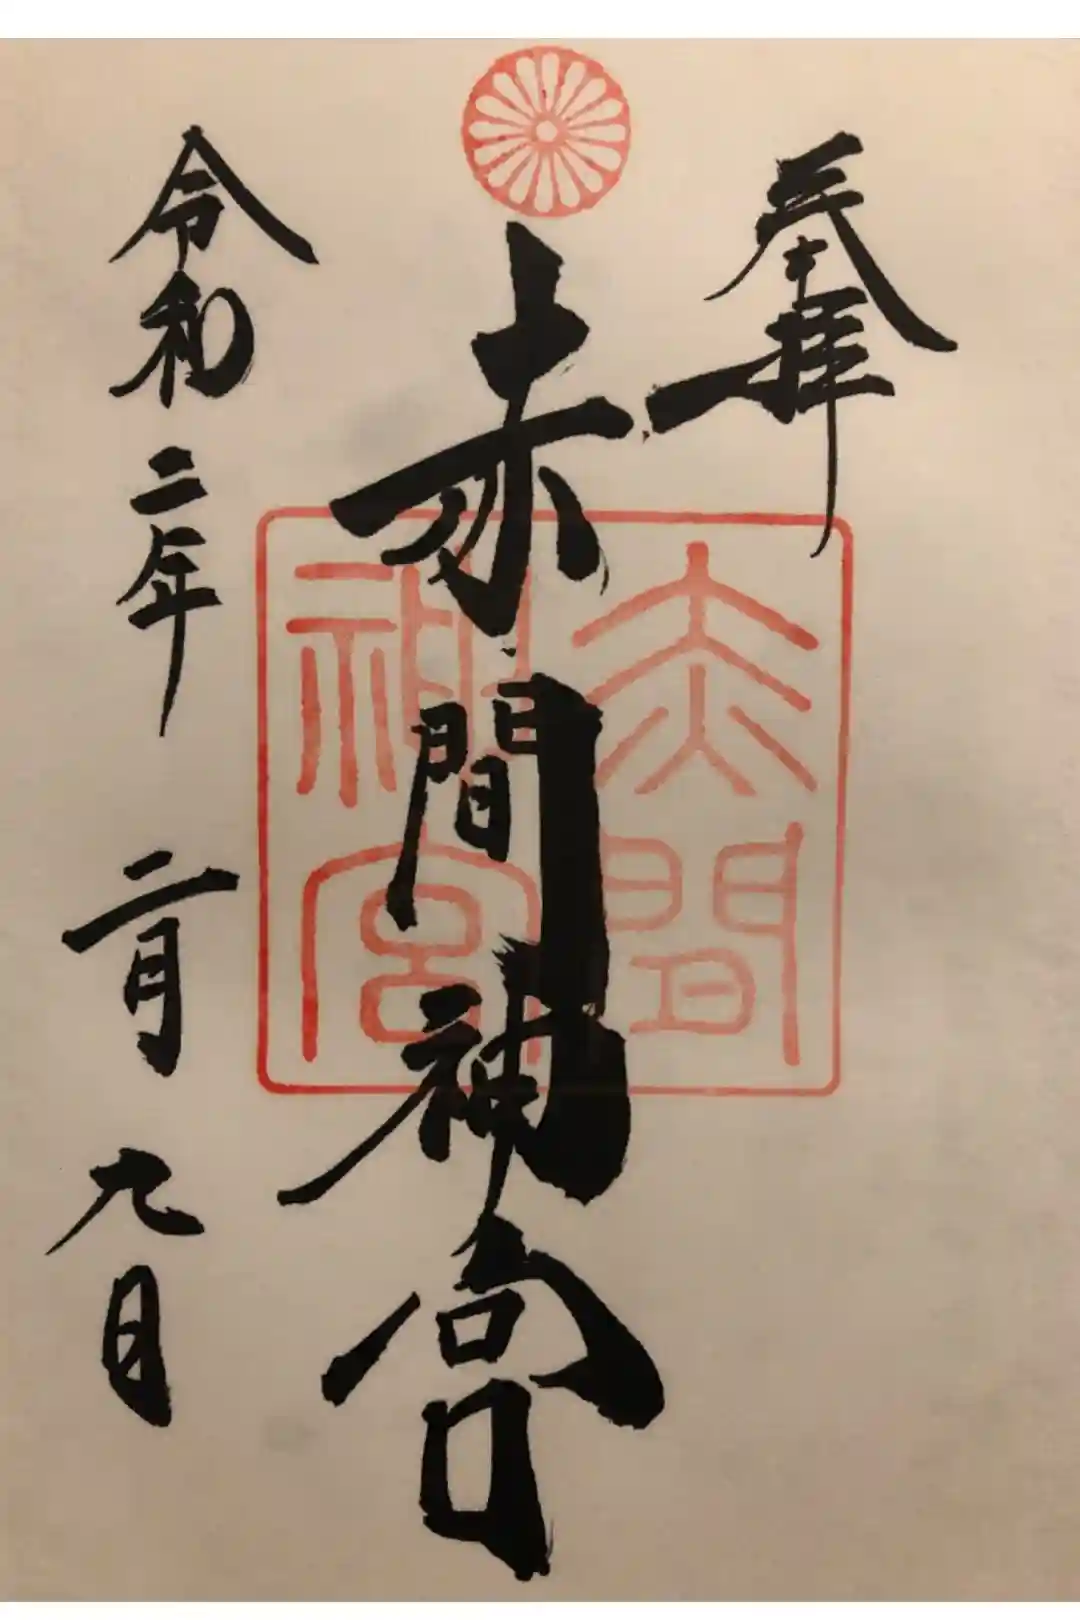 奉拝
赤間神宮
令和二年 二月 九日
赤間
神宮